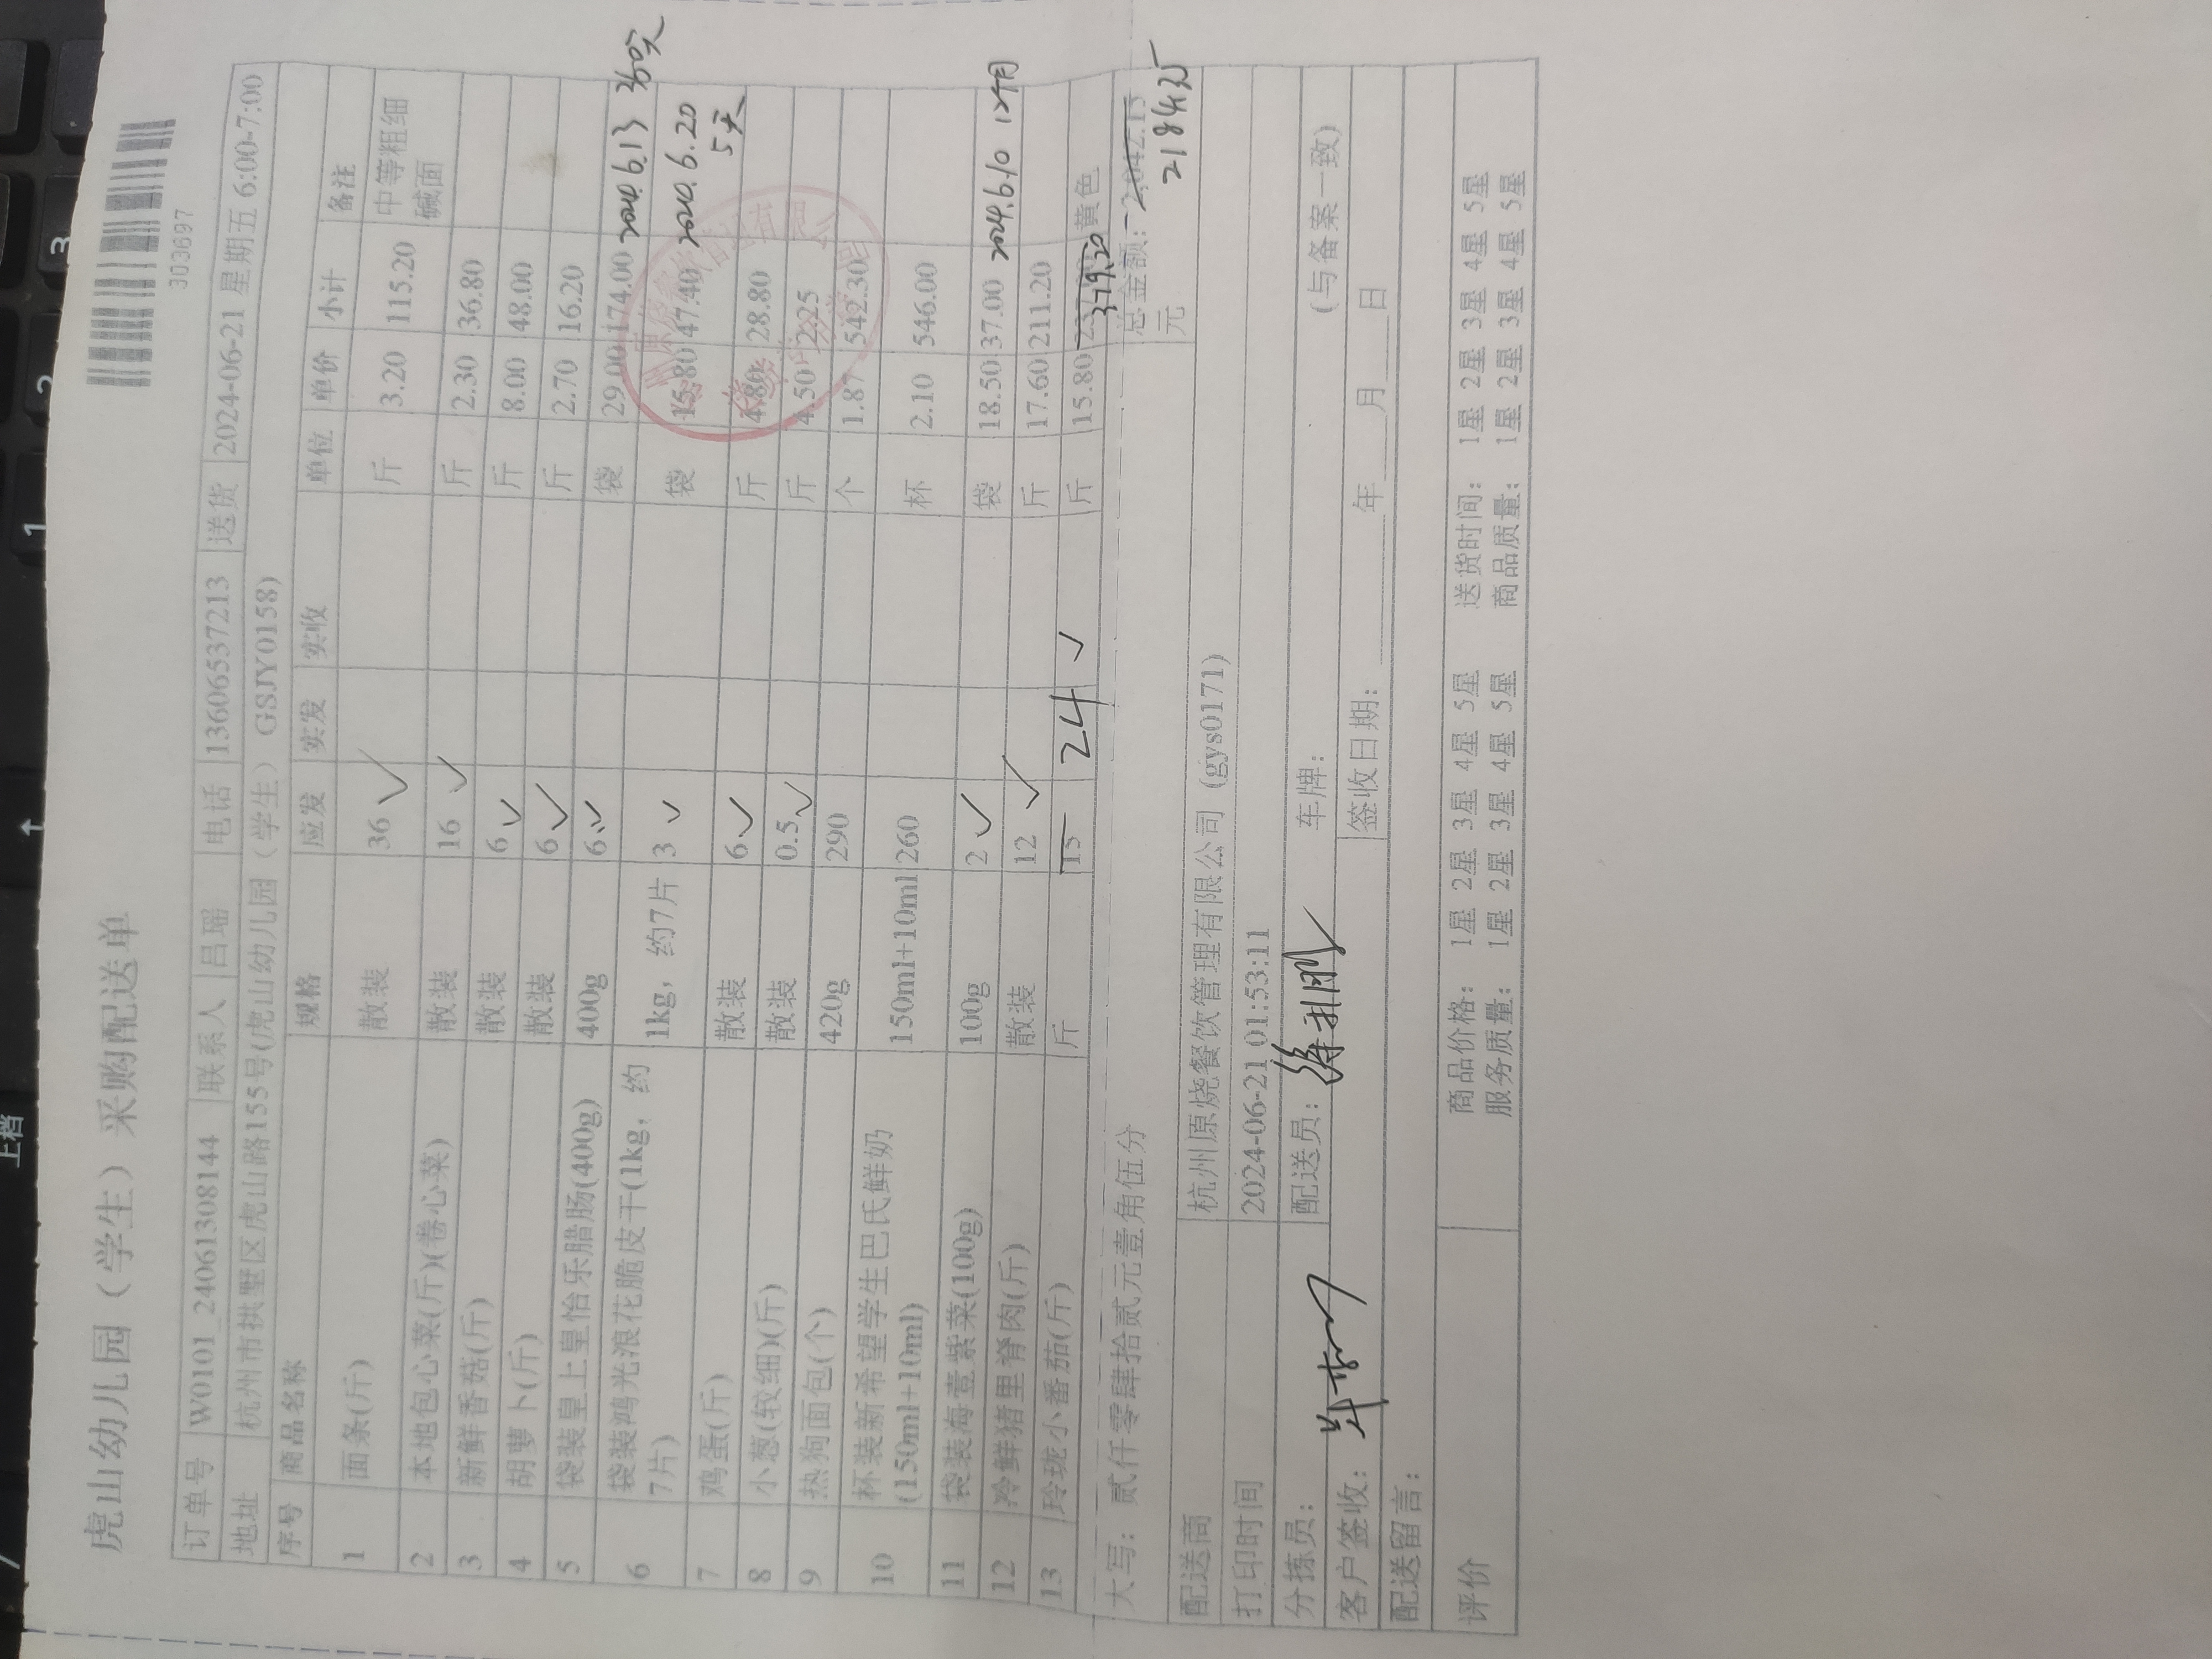 虎山幼儿园（学生）采购配送单
303697
订单号 W0101_240613081​44 联系人 吕瑶 电话 13606537213 送货 2024-06-21 星期五 6:00-7:00
地址 杭州市拱墅区虎山路155号(虎山幼儿园（学生） GSJY0158)
序号 商品名称 规格 应发 实发 实收 单位 单价 小计 备注
1 面条(斤) 散装 36 ✓ 斤 3.20 115.20 中等粗细
碱面
2 本地包心菜(斤)(卷心菜) 散装 16 ✓ 斤 2.30 36.80
3 新鲜香菇(斤) 散装 6 ✓ 斤 8.00 48.00
4 胡萝卜(斤) 散装 6 ✓ 斤 2.70 16.20
5 袋装皇上皇怡乐腊肠(400g) 400g 6 ✓ 袋 29.00 174.00 2024.6.13 360天
6 袋装鸿光浪花脆皮干(1kg，约 1kg，约7片 3 ✓ 袋 15.80 47.40 2024.6.20
7片) 5天
7 鸡蛋(斤) 散装 6 ✓ 斤 4.80 28.80
8 小葱(较细)(斤) 散装 0.5 ✓ 斤 4.50 2.25
9 热狗面包(个) 420g 290 个 1.87 542.30
10 杯装新希望学生巴氏鲜奶 150ml+10ml 260 杯 2.10 546.00
(150ml+10ml)
11 袋装海壹紫菜(100g) 100g 2 ✓ 袋 18.50 37.00 2024.6.10 12个月
12 冷鲜猪里脊肉(斤) 散装 12 ✓ 斤 17.60 211.20
13 玲珑小番茄(斤) 斤 15 24 ✓ 斤 15.80 379.20 黄色
大写：贰仟零肆拾贰元壹角伍分 总金额：2,042.15
元 2184.35
配送商 杭州原烧餐饮管理有限公司（gys0171)
打印时间 2024-06-21 01:53:11
分拣员： 配送员： 车牌： (与备案一致)
客户签收： 签收日期： 年 月 日
配送留言：
评价 商品价格： 1星 2星 3星 4星 5星 送货时间： 1星 2星 3星 4星 5星
服务质量： 1星 2星 3星 4星 5星 商品质量： 1星 2星 3星 4星 5星
上档
1
2
3